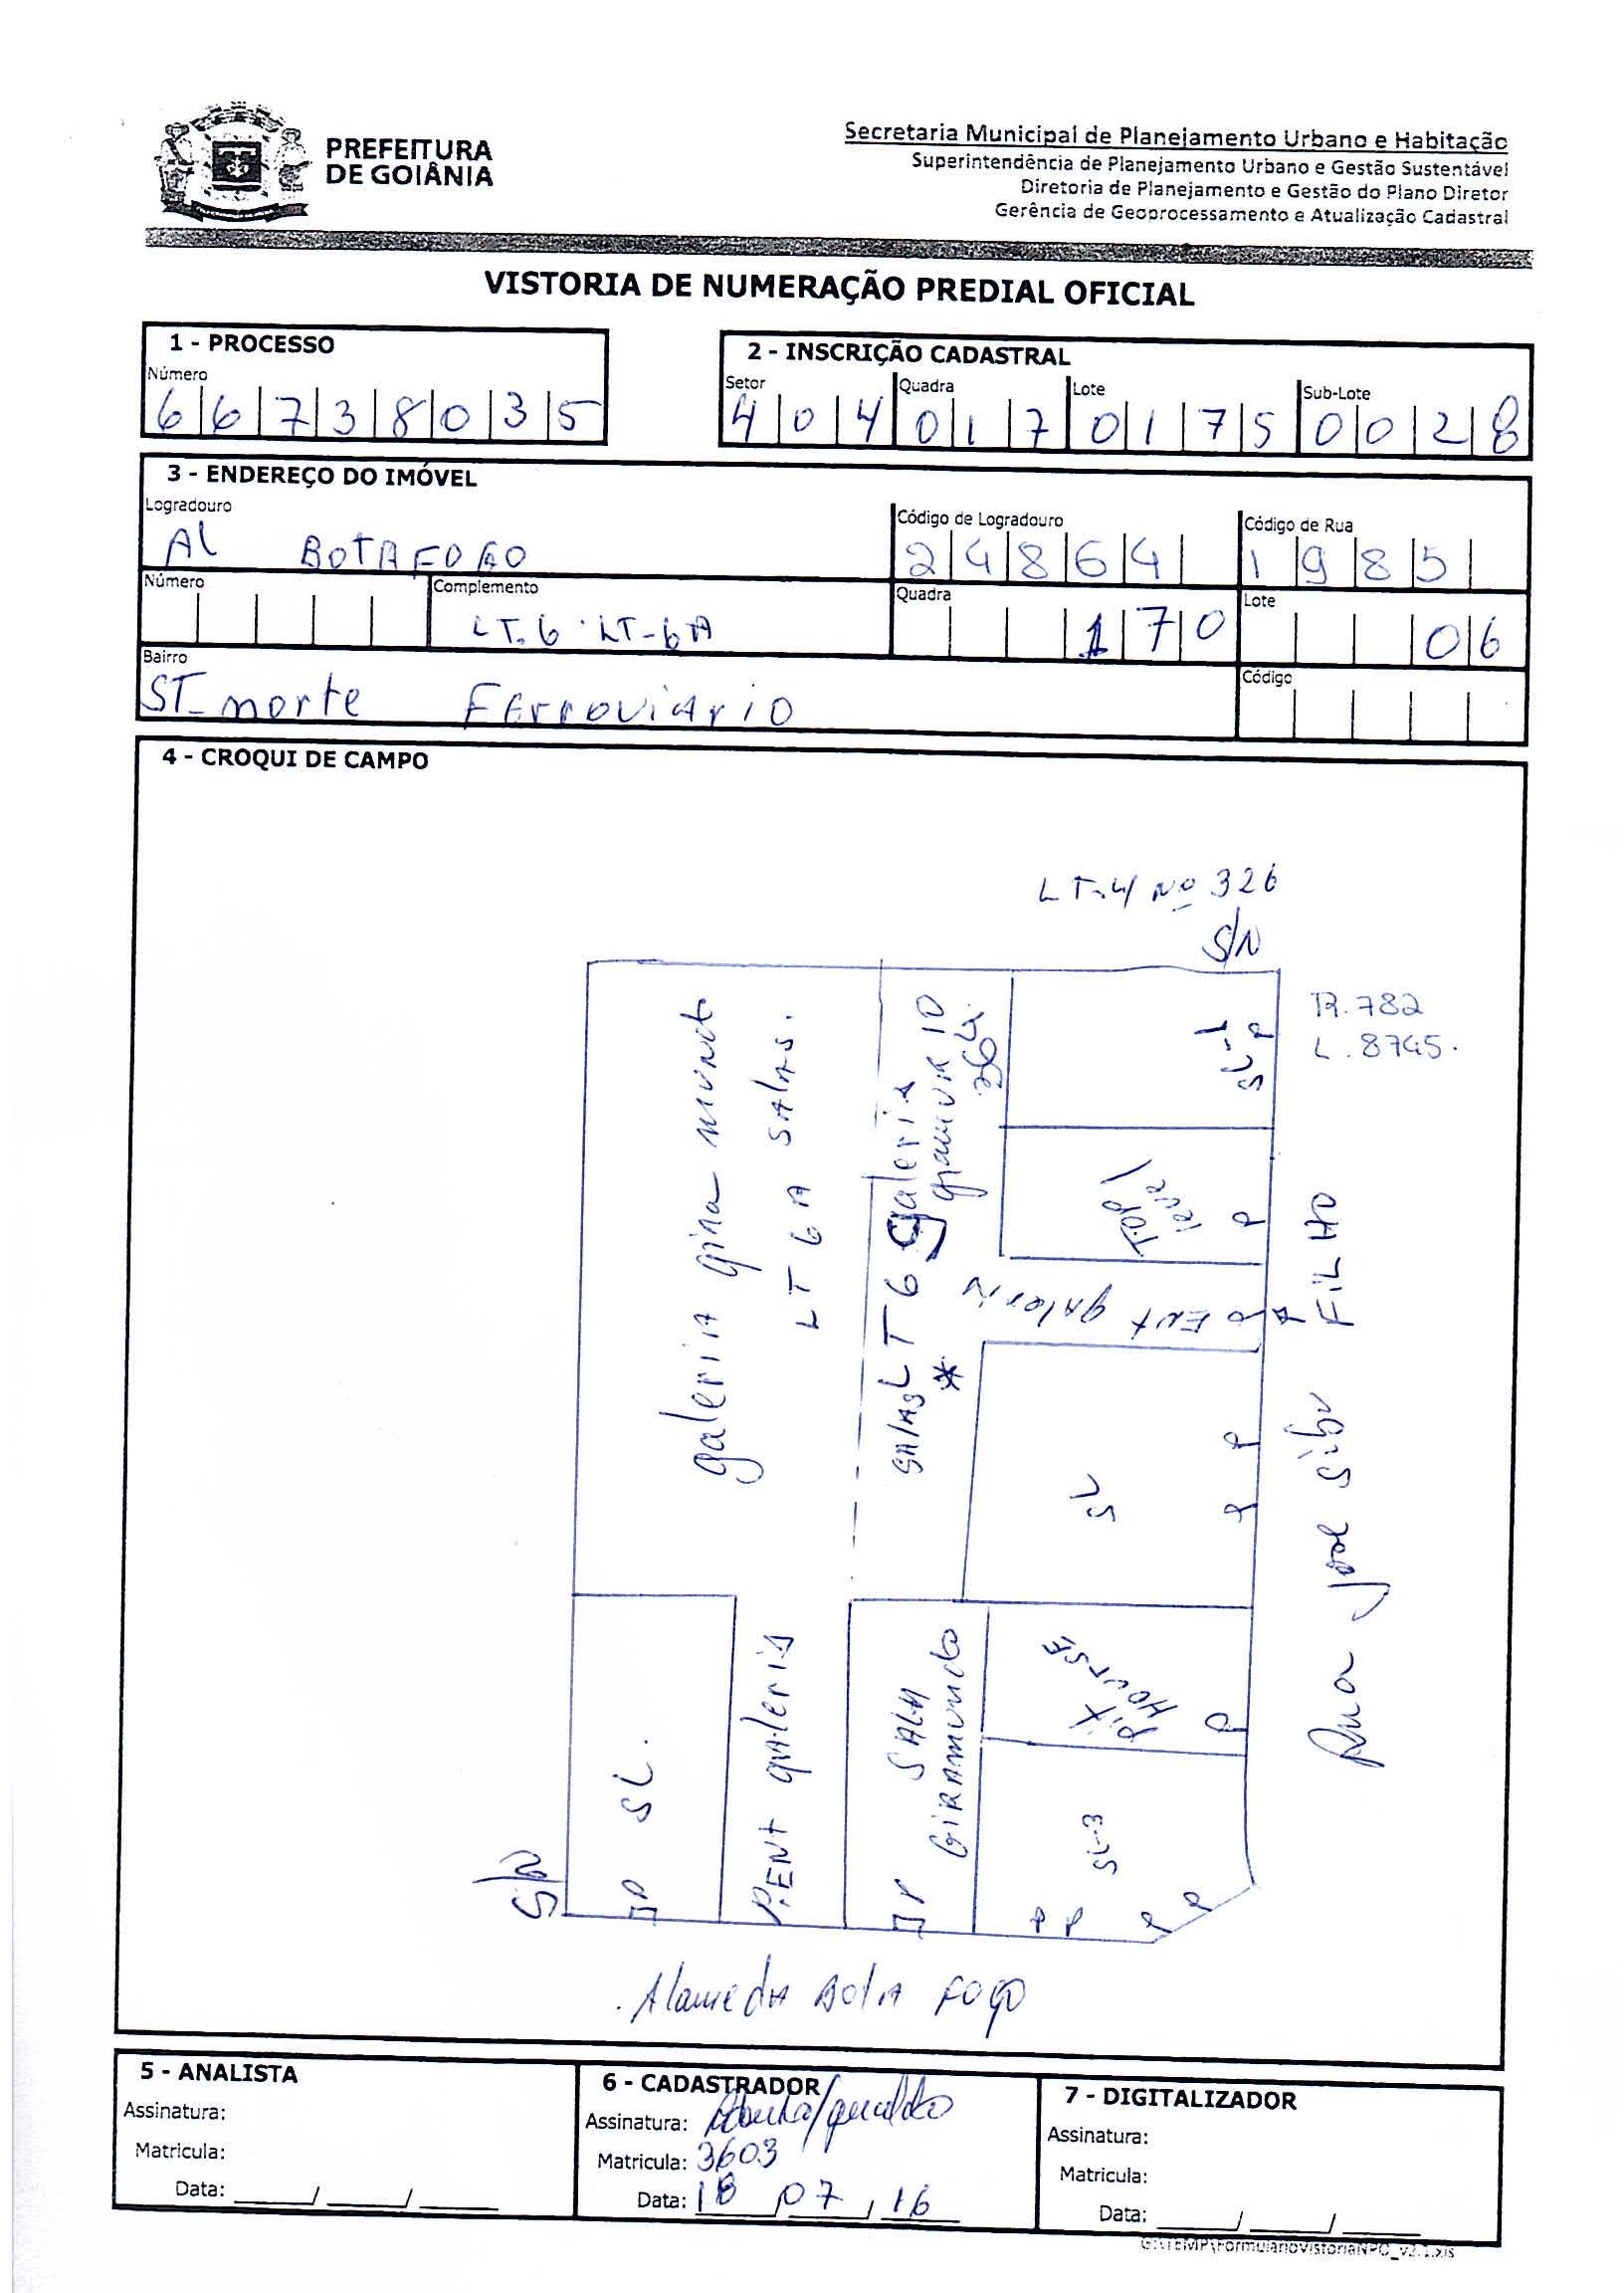 PREFEITURA
DE GOIÂNIA
Secretaria Municipal de Planejamento Urbano e Habitação
Superintendência de Planejamento Urbano e Gestão Sustentável
Diretoria de Planejamento e Gestão do Plano Diretor
Gerência de Geoprocessamento e Atualização Cadastral
VISTORIA DE NUMERAÇÃO PREDIAL OFICIAL
1 - PROCESSO
Número
66738035
2 - INSCRIÇÃO CADASTRAL
Setor Quadra Lote Sub-Lote
404 017 0175 0028
3 - ENDEREÇO DO IMÓVEL
Logradouro Código de Logradouro Código de Rua
Al BOTAFOGO 24864 1985
Número Complemento Quadra Lote
LT.6 LT-6A 170 06
Bairro Código
ST_norte Ferroviario
4 - CROQUI DE CAMPO
LT.4 Nº 326
S/N
R.782
L.8745.
SL-1
P
galeria gira mundo
LT 6 A SALAS.
SALAS LT 6 galeria
364
*
TOP
level
P
P ENT galeria
SL
P P
Rua José Silva FILHO
Pit
HOUSE
P
SL-3
P P P P
SALA
GIRAMUNDO
P
P.ENT galeria
SL.
P
S/N
Alameda Bota Fogo
5 - ANALISTA
Assinatura:
Matricula:
Data: ____/____/____
6 - CADASTRADOR
Assinatura:
Matricula: 3603
Data: 18/07/16
7 - DIGITALIZADOR
Assinatura:
Matricula:
Data: ____/____/____
G:\TEMP\FormularioVistoriaNPO_v2.1.xls